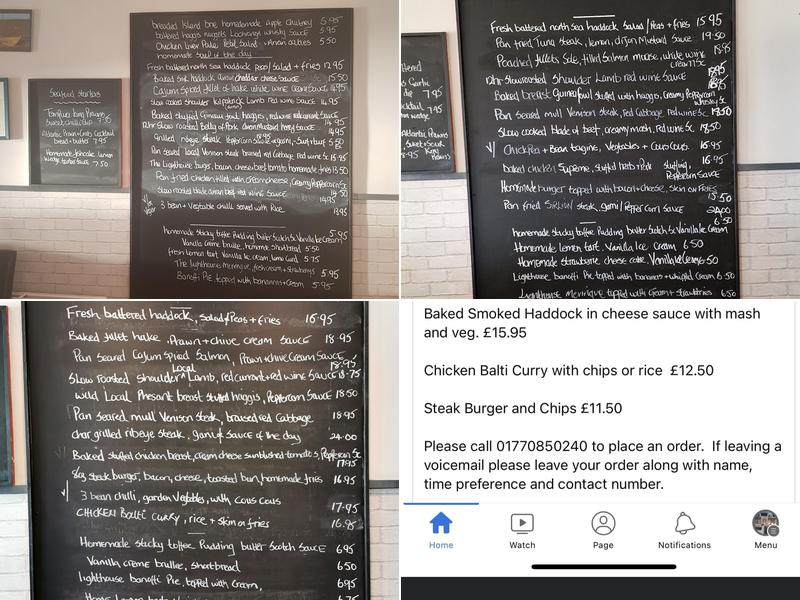 breaded Island brie homemade Apple Chutney 5.95
battered haggis nuggets Lochranza whisky Sauce 5.95
Chicken liver Pate Petit Salad + Arran oaties 5.50
homemade Soup of the day
Fresh battered north sea haddock peas/salad + fries 12.95
Baked Smk haddock arran cheddar cheese Sauce 15.50
Cajun Spiced fillet of hake white wine Cream Sauce 14.95
Slow cooked shoulder Lamb red wine Sauce 14.95
Baked Stuffed Guineafowl, haggis, red wine redcurrant sauce
12hr Slow roasted Belly of Pork Arran Mustard Honey Sauce 14.95
Grilled ribeye Steak
Pan seared local Venison Steak braised red Cabbage red wine Sc 15.95
The Lighthouse burger, bacon, cheese, beef tomato homemade fries 13.50
Pan fried chicken filled with cream cheese, Creamy Peppercorn Sc
Slow roasted blade arran beef red wine Sauce 14.50
3 bean + Vegetable chilli served with Rice 13.95
homemade Sticky toffee Pudding butter Scotch Sc Vanilla Ice Cream 5.95
Vanilla Creme brulle, homemade Shortbread 5.50
fresh lemon tart Vanilla ice cream, lemon Curd 5.75
The Lighthouse Meringue, fresh cream + Strawberrys 5.95
Banoffi Pie topped with bananas + Cream 5.95
Seafood Starters
Sweet chilli dip 7.95
Atlantic Prawn + Crab Cocktail
bread + butter 7.95
wedge 7.50
Fresh battered north sea haddock Salad /Peas + fries 15.95
Pan fried Tuna Steak, lemon, dijon Mustard Sauce 19.50
Poached fillets Sole, filled Salmon mousse, white wine Cream Sc 18.95
12hr slow roasted shoulder Lamb red wine Sauce
Baked breast guineafowl stuffed with haggis, Creamy Peppercorn whisky Sc
Pan seared mull Venison Steak, red Cabbage red wine Sc 19.50
Slow cooked blade of beef, creamy mash, red wine Sc 18.50
V Chickpea + Bean tagine, Vegetables + Cous Cous 16.95
Baked chicken Supreme, Stuffed herbs Pork Stuffing, Peppercorn Sc 16.95
Homemade burger topped with bacon + cheese, Skin on Fries 15.50
Pan fried Sirloin Steak, garni / Pepper Corn Sauce 24.00
homemade Sticky toffee Pudding butter Scotch Sc Vanilla Ice Cream
Homemade lemon tart, Vanilla Ice Cream 6.50
Homemade Strawberry cheese cake, Vanilla Ice Cream 6.50
Lighthouse banoffi Pie topped with bananas + whipped Cream 6.50
Lighthouse Meringue topped with Cream + Strawberries 6.50
Fresh battered haddock, Salad/Peas + fries 16.95
Baked fillet hake, Prawn + chive cream Sauce 18.95
Pan Seared Cajun Spiced Salmon, Prawn + chive Cream Sauce 18.95
Slow roasted shoulder Local Lamb, redcurrant + red wine Sauce 18.75
Wild Local Pheasant breast Stuffed haggis, Peppercorn Sauce 18.50
Pan Seared mull Venison Steak, braised red Cabbage 18.95
Char grilled ribeye Steak, garni + Sauce of the day 24.00
Baked Stuffed chicken breast, cream cheese sunblushed tomatoes, Peppercorn Sc 17.95
8oz Steak burger, bacon, cheese, toasted bun, homemade fries 16.95
V 3 bean chilli, garden Vegetables, with Cous Cous 17.95
CHICKEN Balti Curry, rice + skin on fries 16.95
Homemade Sticky toffee Pudding butter Scotch Sauce 6.95
Vanilla creme brulle, Shortbread 6.50
Lighthouse banoffi Pie, topped with Cream, 6.95
Baked Smoked Haddock in cheese sauce with mash
and veg. £15.95
Chicken Balti Curry with chips or rice £12.50
Steak Burger and Chips £11.50
Please call 01770850240 to place an order. If leaving a
voicemail please leave your order along with name,
time preference and contact number.
Home
Watch
Page
Notifications
Menu